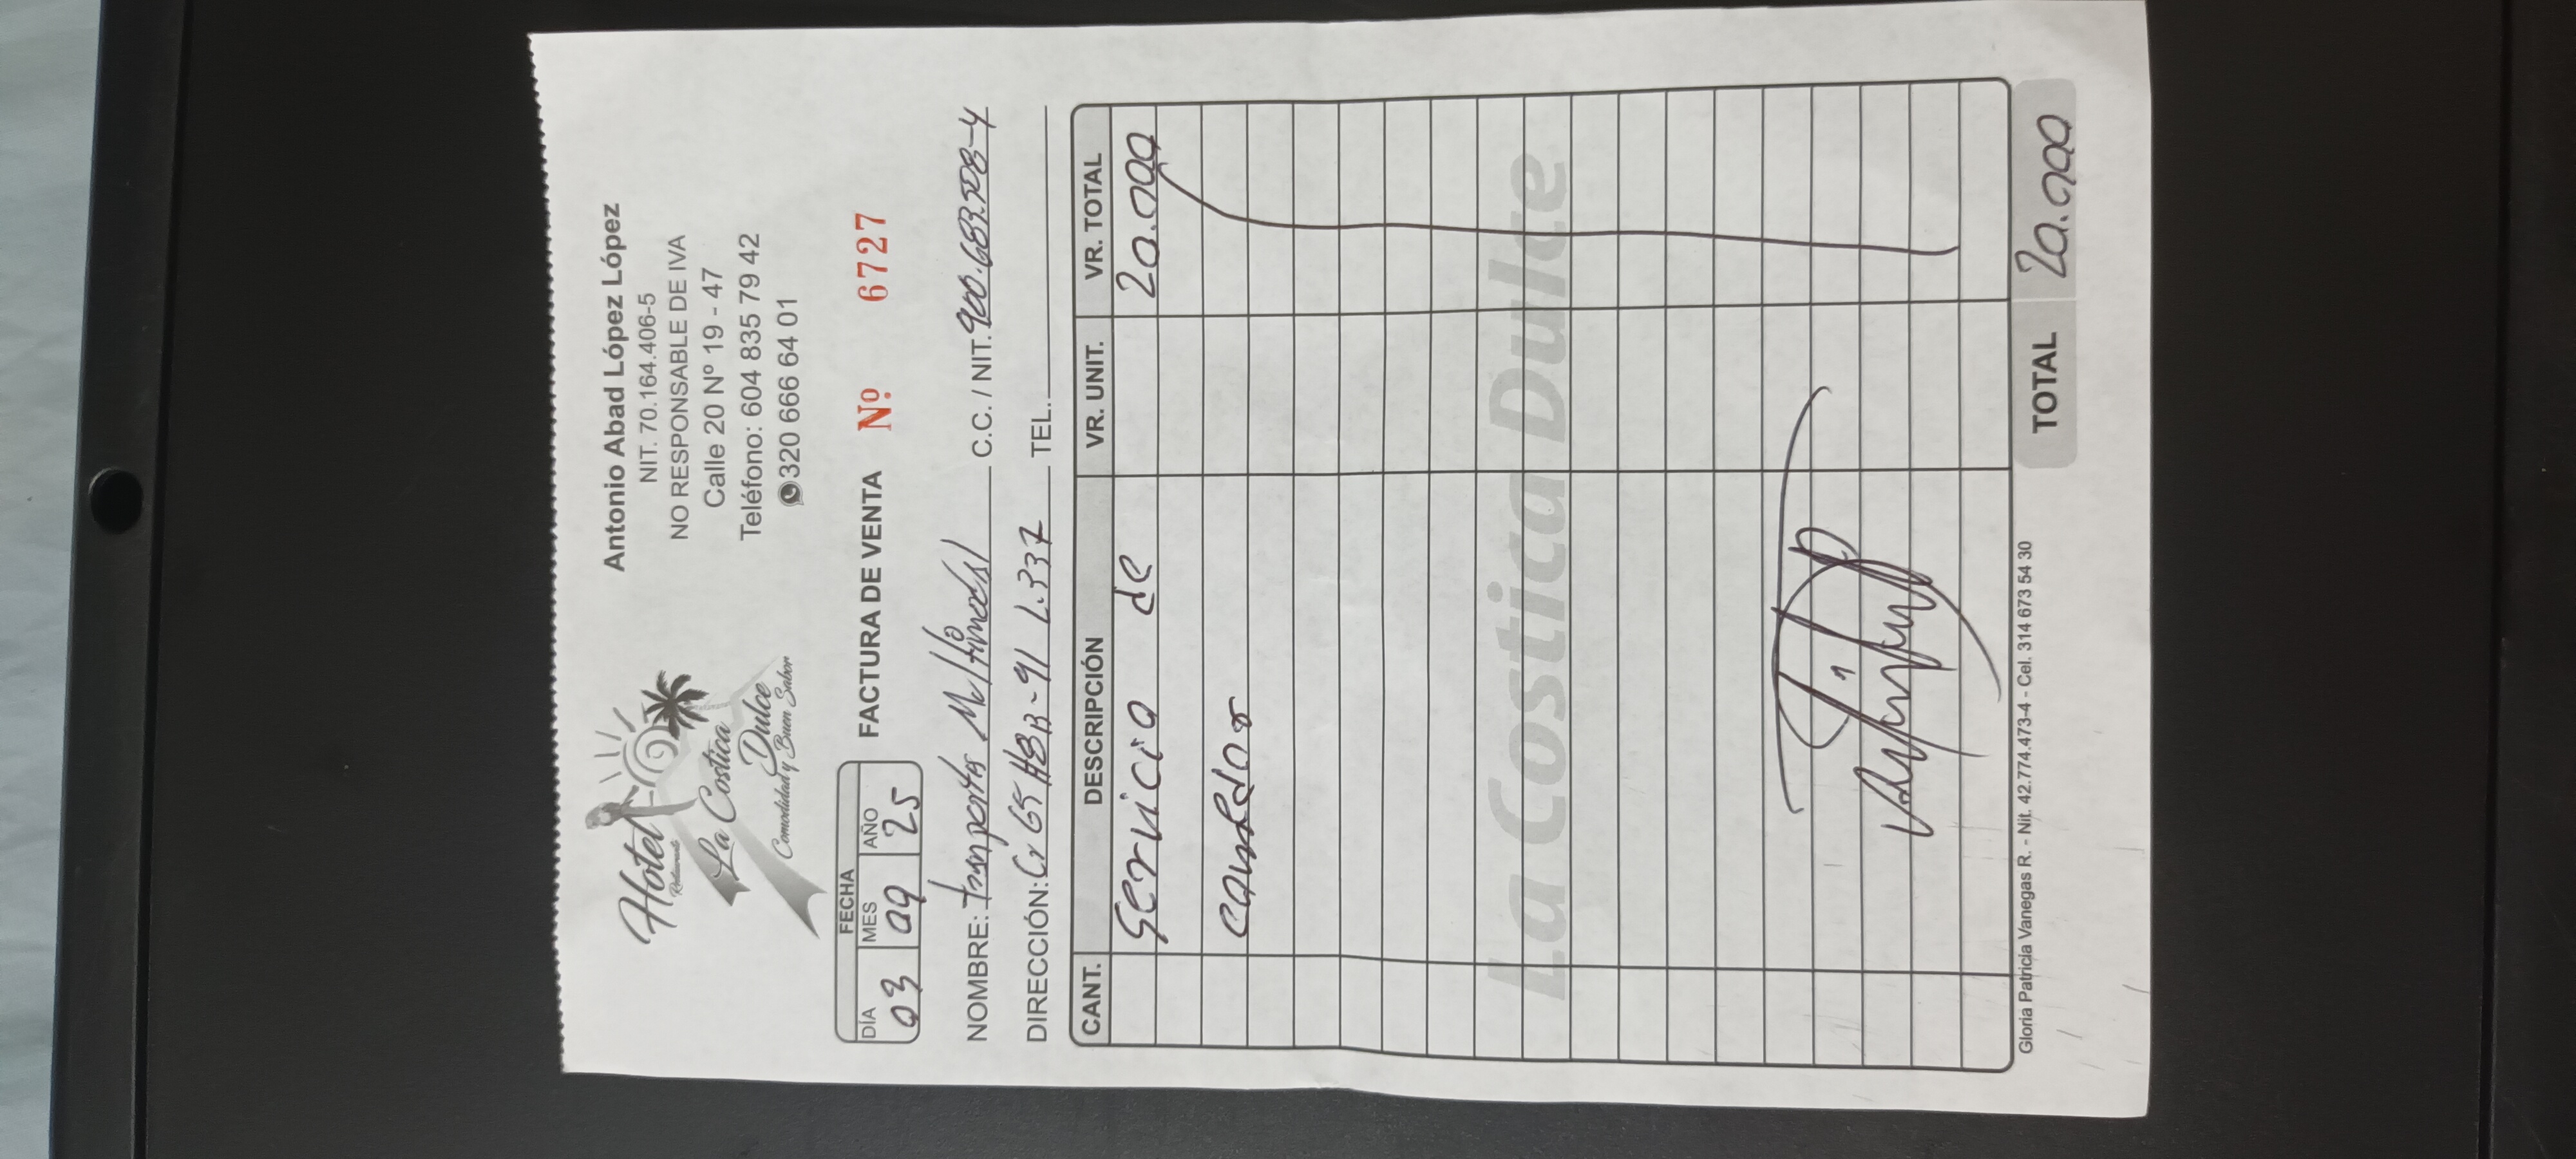 Hotel
Restaurante
La Costica
Dulce
Comodidad y Buen Sabor
Antonio Abad López López
NIT. 70.164.406-5
NO RESPONSABLE DE IVA
Calle 20 Nº 19 - 47
Teléfono: 604 835 79 42
320 666 64 01
FECHA
DÍA MES AÑO
03 09 25
FACTURA DE VENTA Nº 6727
NOMBRE: Transportes Multimodal C.C. / NIT. 900.683.508-4
DIRECCIÓN: Cr 65 #8B-91 L.337 TEL.
CANT. DESCRIPCIÓN VR. UNIT. VR. TOTAL
Servicio de 20.000
comedor
La Costica Dulce
TOTAL 20.000
Gloria Patricia Vanegas R. - Nit. 42.774.473-4 - Cel. 314 673 54 30